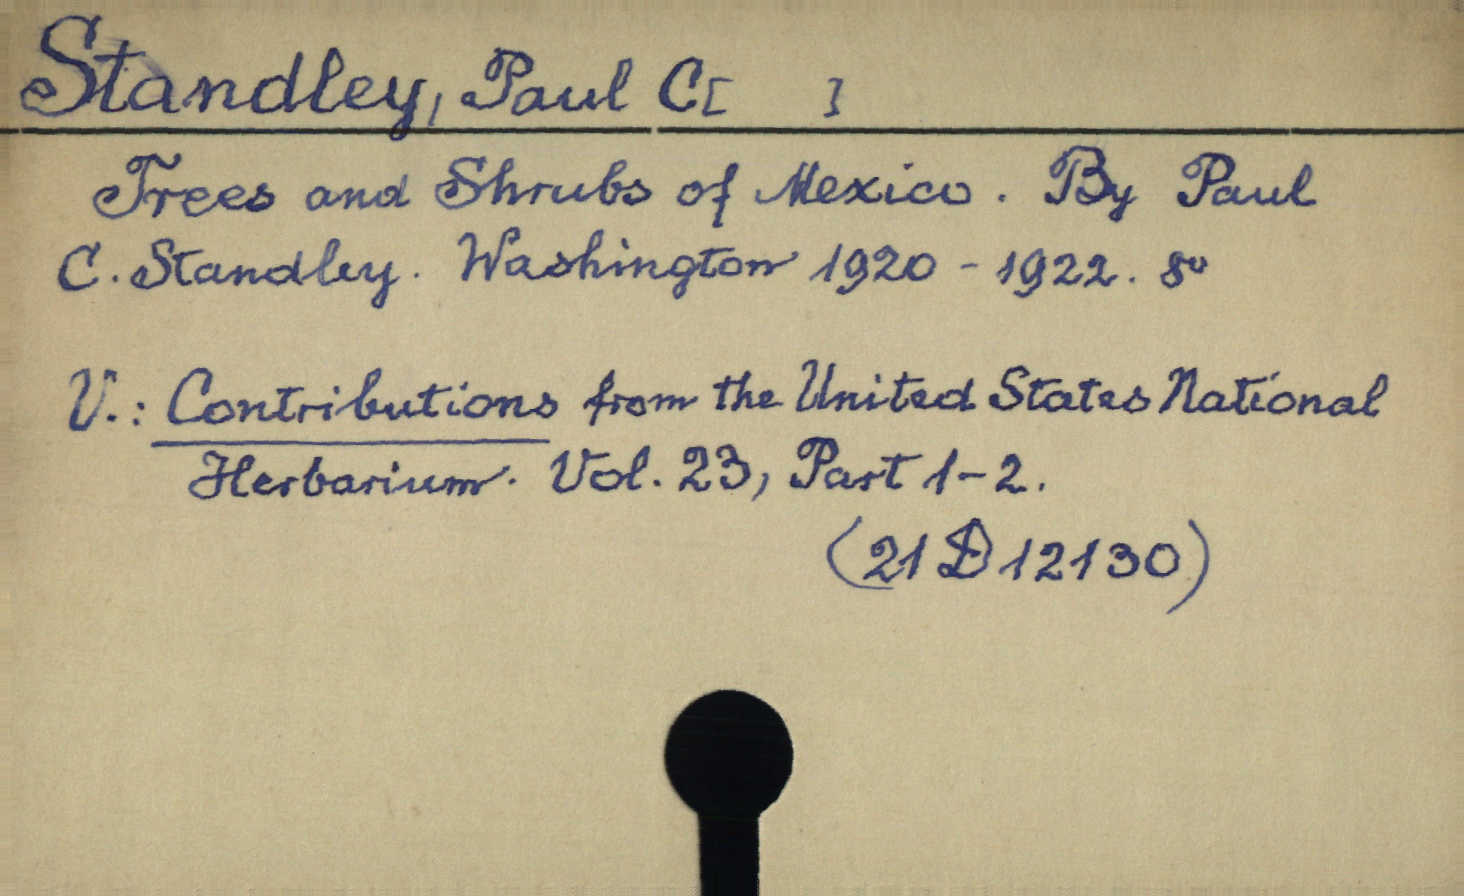 Standley, Paul C[ ]
Trees and Shrubs of Mexico. By Paul
C. Standley. Washington 1920-1922. 8°
V.: Contributions from the United States National
Herbarium. Vol. 23, Part 1-2.
(21 D 12130)